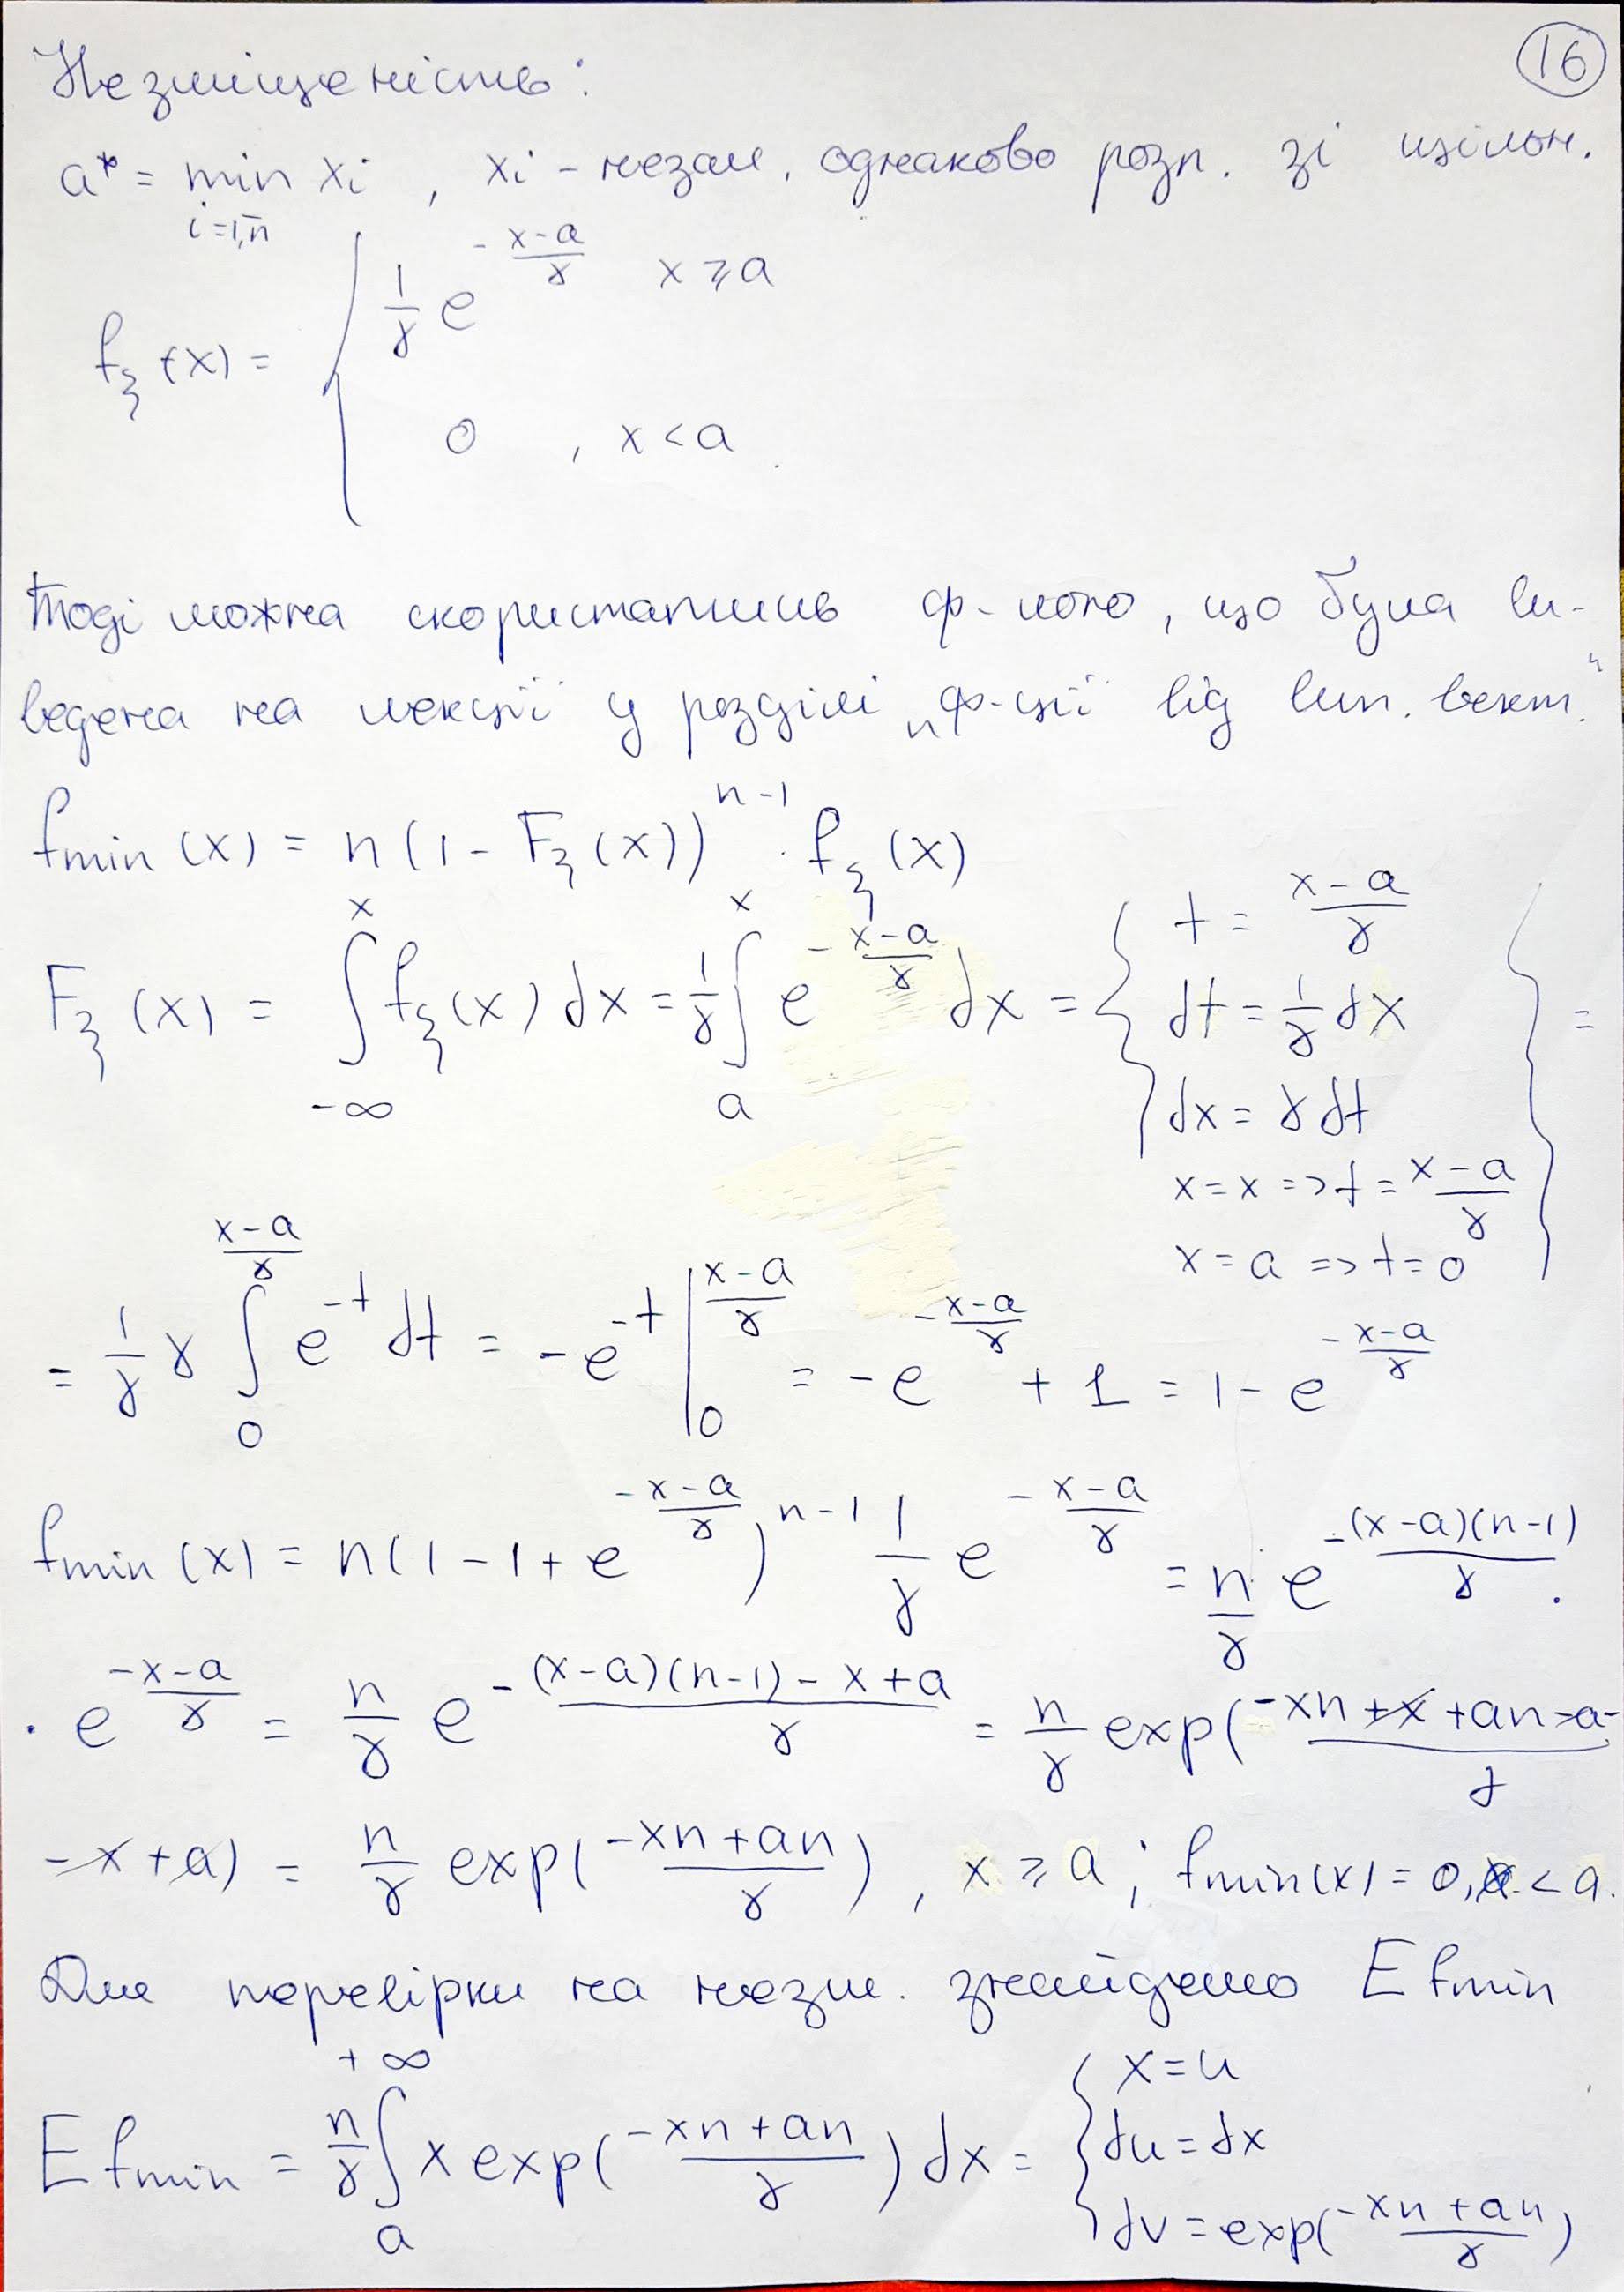 16
Незміщеність:
a* = min xi , xi - незал. однаково розп. зі щільн.
i=1,n̅
fξ(x) = { 1/γ e^(-(x-a)/γ) x ⩾ a
0 , x < a
Тоді можна скористатись ф-лою, що була ви-
ведена на лекції у розділі „Ф-ції від вип. вект."
fmin (x) = n(1 - Fξ(x))^(n-1) · fξ(x)
Fξ(x) = ∫_(-∞)^x fξ(x)dx = 1/γ ∫_a^x e^(-(x-a)/γ) dx = { t = (x-a)/γ
dt = 1/γ dx
dx = γdt
x = x => t = (x-a)/γ
x = a => t = 0 } =
= 1/γ γ ∫_0^((x-a)/γ) e^(-t) dt = -e^(-t) |_0^((x-a)/γ) = -e^(-(x-a)/γ) + 1 = 1 - e^(-(x-a)/γ)
fmin (x) = n(1-1+e^(-(x-a)/γ))^(n-1) 1/γ e^(-(x-a)/γ) = n/γ e^(-(x-a)(n-1)/γ) ·
· e^(-(x-a)/γ) = n/γ e^((-(x-a)(n-1)-x+a)/γ) = n/γ exp((-xn+x+an-a-
-x+a) = n/γ exp((-xn+an)/γ), x ⩾ a ; fmin(x) = 0, x < a.
Для перевірки на незм. знайдемо E fmin
E fmin = n/γ ∫_a^(+∞) x exp((-xn+an)/γ) dx = { x = u
du = dx
dv = exp((-xn+an)/γ)